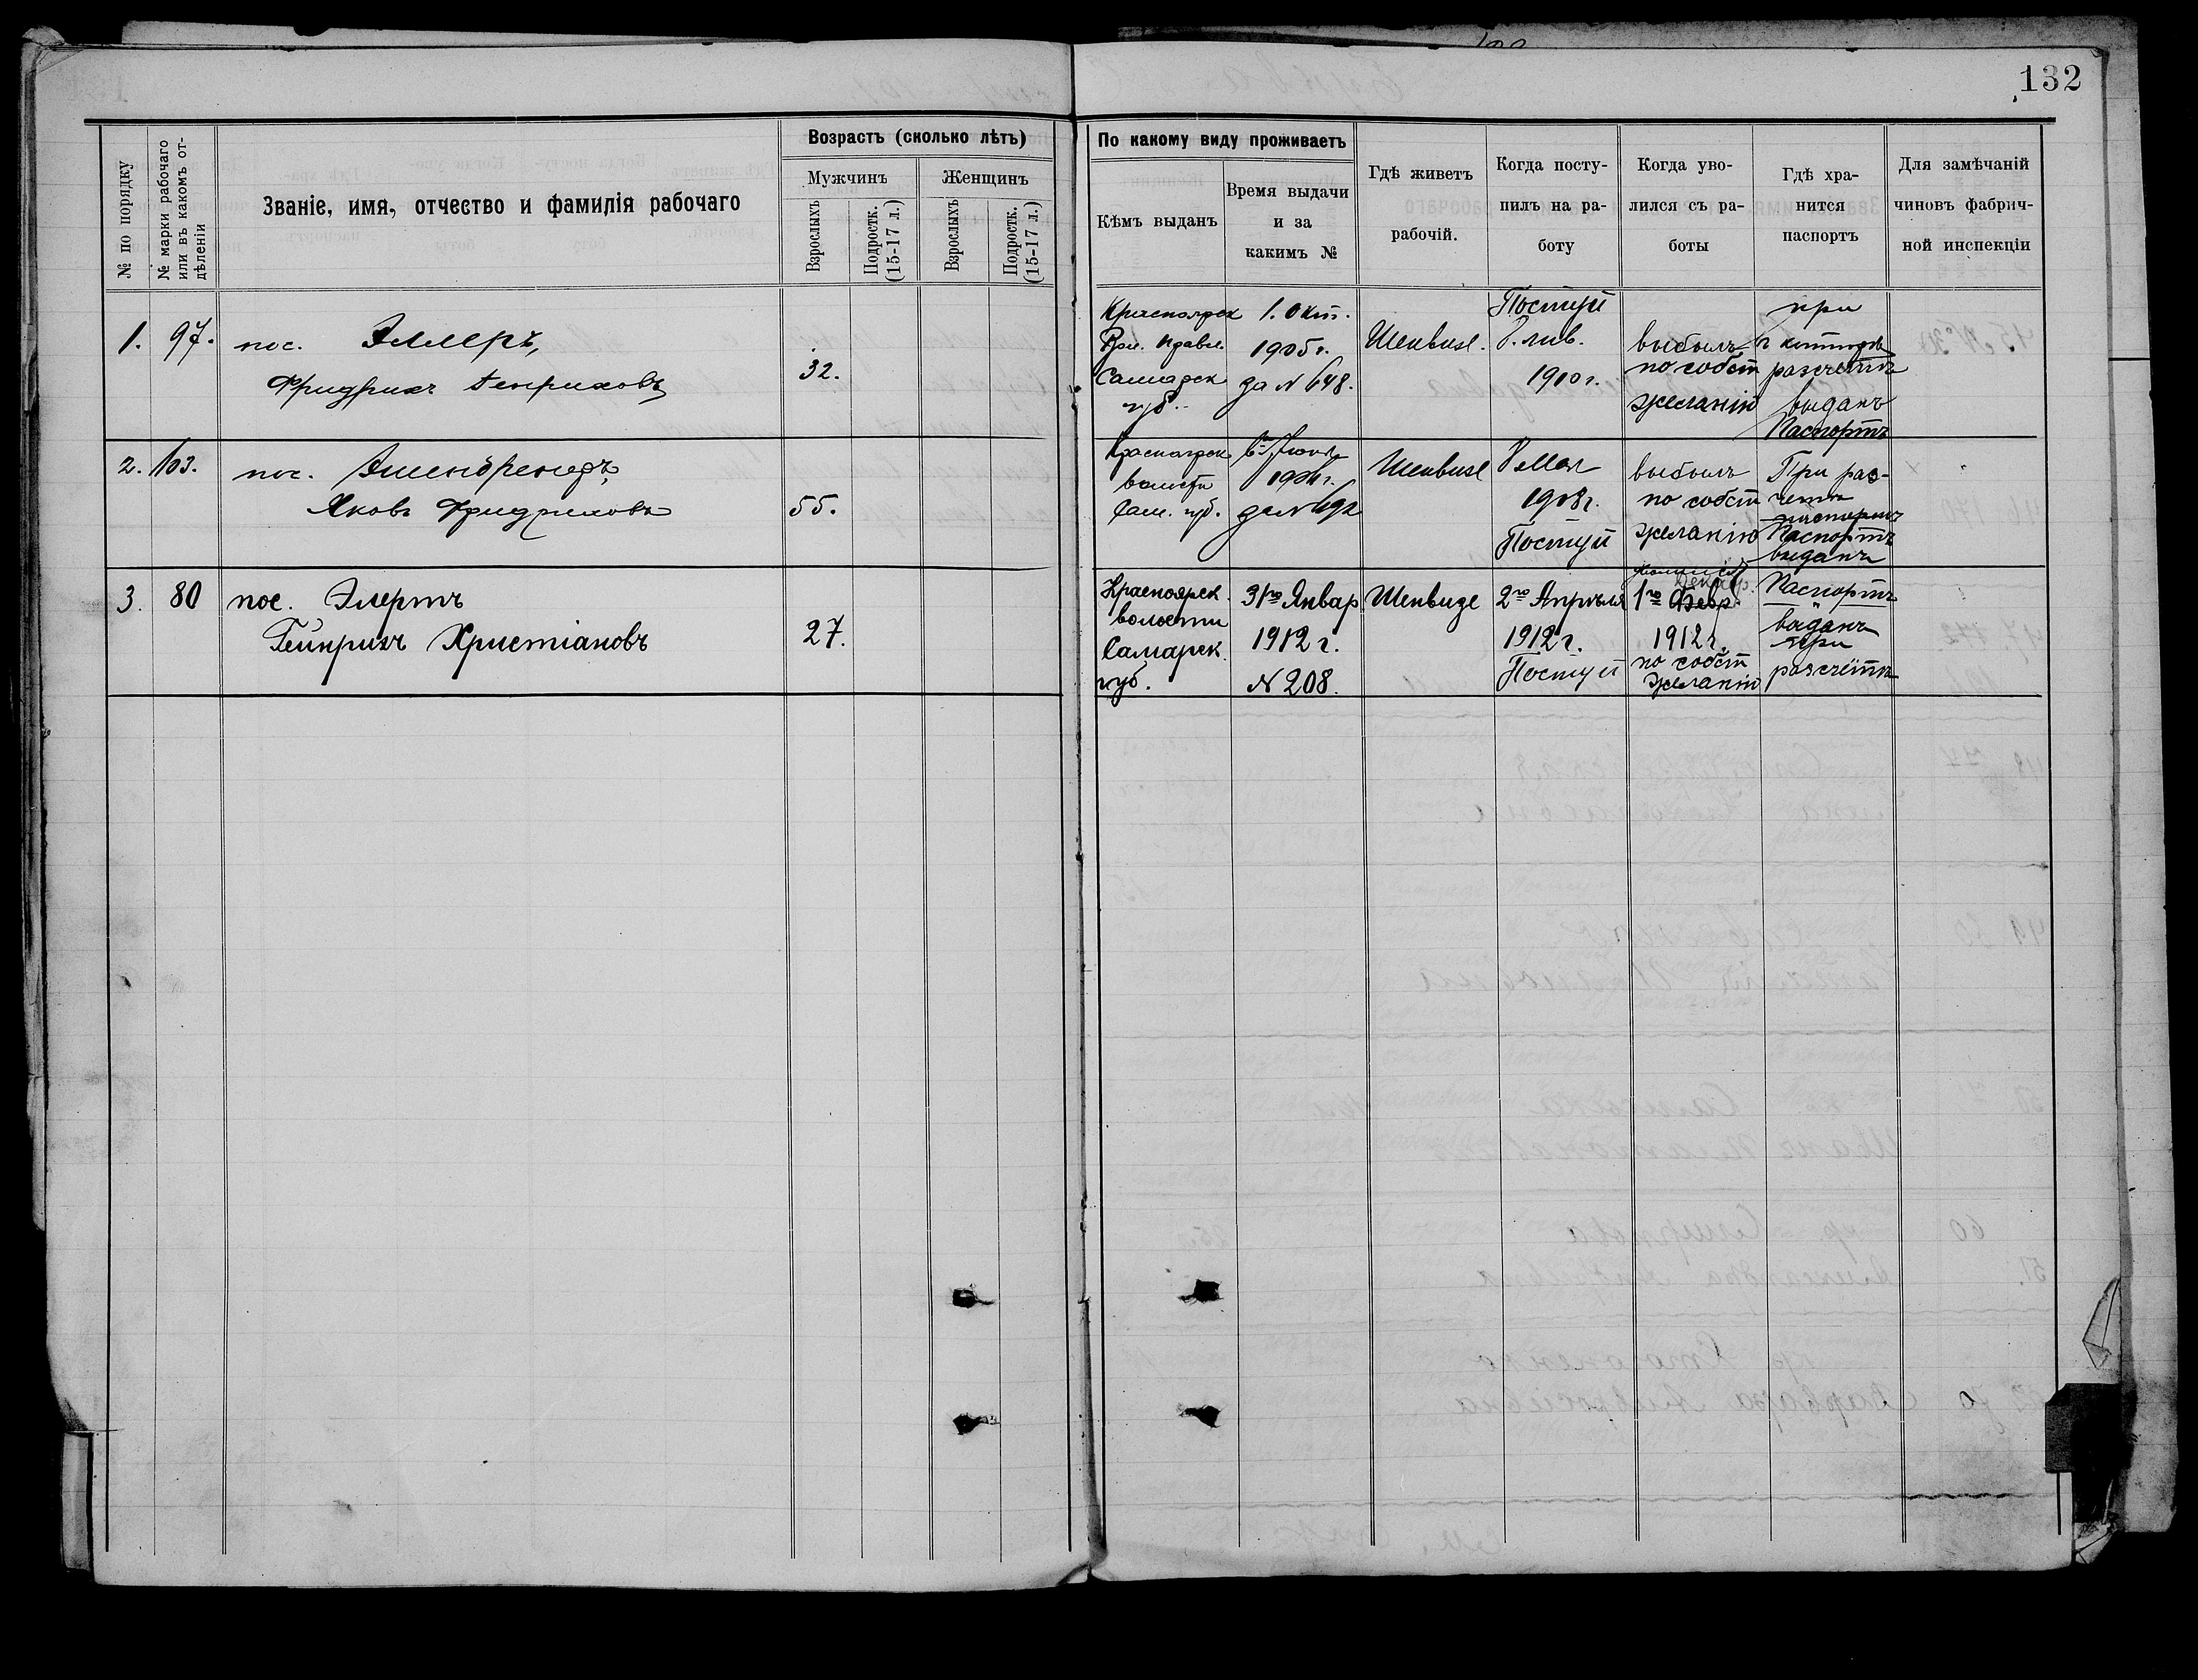 132
№ по порядку
№ марки рабочаго
или въ какомъ от-
дѣленіи
Званіе, имя, отчество и фамилія рабочаго
Возрастъ (сколько лѣтъ)
Мужчинъ
Женщинъ
Взрослыхъ
Подростк.
(15-17 л.)
Взрослыхъ
Подростк.
(15-17 л.)
По какому виду проживаетъ
Кѣмъ выданъ
Время выдачи
и за
какимъ №
Гдѣ живетъ
рабочій.
Когда посту-
пилъ на ра-
боту
Когда уво-
лился съ ра-
боты
Гдѣ хра-
нится
паспортъ
Для замѣчаній
чиновъ фабрич-
ной инспекціи
1. 97. пос. Эллеръ,
Фридрихъ Генриховъ
32.
Красноярск
правл.
Самарск
губ.
1. Окт.
1905 г.
за № 648.
Шенвизе.
Поступ
1900 г.
выбылъ
по собст
желанію
при
разсчетѣ
выданъ
Паспортъ
2. 103. пос.
Яковъ Фридриховъ
55.
Красноярск
волости
Сам. губ.
за № 692
Шенвизе
Мая
1908 г.
Поступ
выбылъ
по собст
желанію
При раз-
четѣ
Паспортъ
выданъ
3. 80 пос. Элертъ
Гейнрихъ Христіановъ
27.
Красноярск.
волости
Самарск.
губ.
31го Январ
1912 г.
№ 208.
Шенвизе
2го Апрѣля
1912 г.
Поступ
Декабр.
1го Февр.
1912 г.
по собст
желанію
Паспортъ
выданъ
при
разсчетѣ